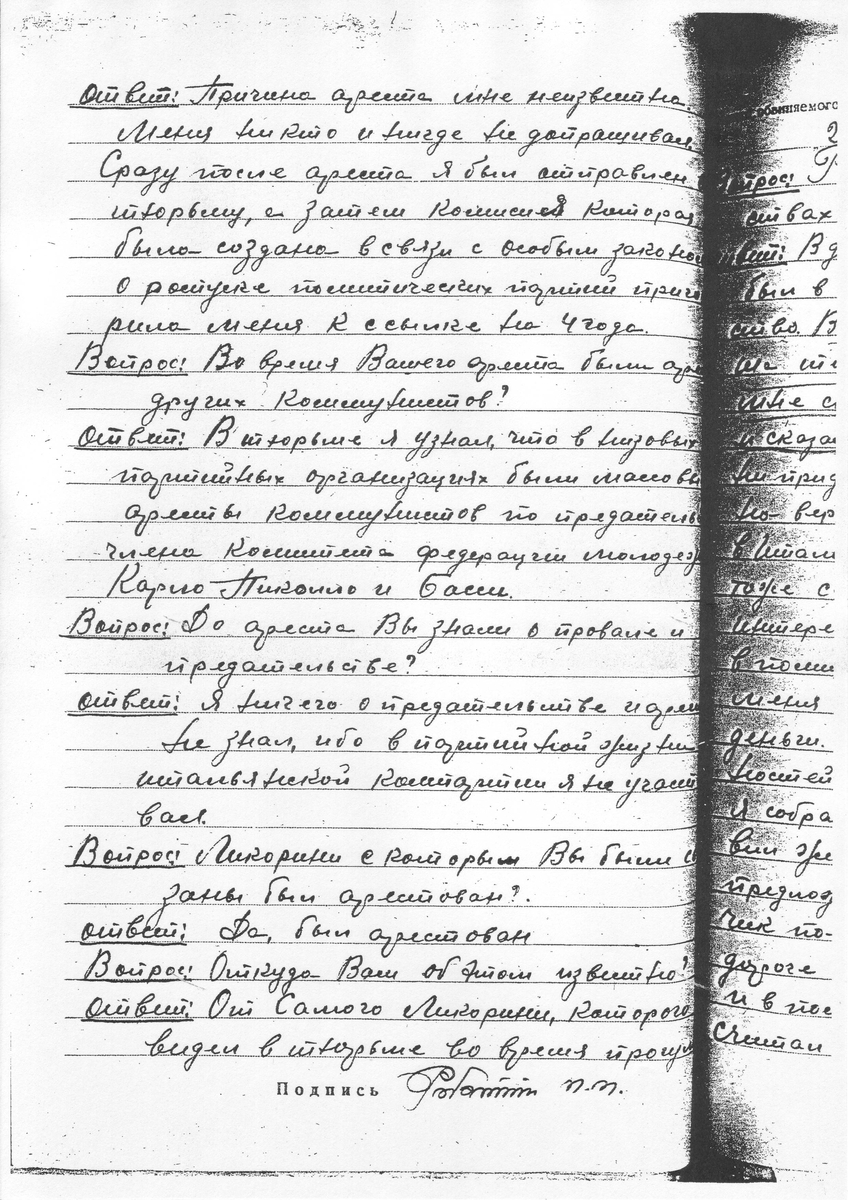 Ответ: Причина ареста мне неизвестна.
Меня никто и нигде не допрашивал
Сразу после ареста я был отправлен
тюрьму, а затем комиссией которая
была создана в связи с особым закон
о роспуске политических партий приго
рила меня к ссылке на 4 года.
Вопрос: Во время Вашего ареста были аре
других коммунистов?
Ответ: В тюрьме я узнал, что в низовых
партийных организациях были массовы
аресты коммунистов по предатель
члена Комитета федерации молодеж
Карло Николло и Басси.
Вопрос: До ареста Вы знали о провале и
предательстве?
Ответ: Я ничего о предательстве и арес
не знал, ибо в партийной жизни
итальянской компартии я не участ
вал.
Вопрос: Ликорини с которым Вы были с
заны был арестован?.
Ответ: Да, был арестован
Вопрос: Откуда Вам об этом известно?
Ответ: От Самого Ликорини, которого
видел в тюрьме во время прогул
Подпись Роботти П.П.
обвиняемого
2
Вопрос:
ствах
Ответ: В д
был в
ство. В
мне с
и сказа
ни прид
на вер
в Итал
тоже с
интере
в поли
меня
деньги.
ностей
Я собра
вил же
предлож
чик по-
дороге
и в пос
Считал